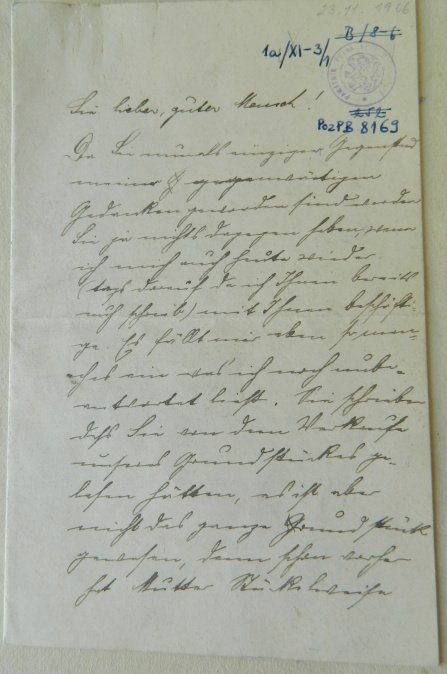 23.11.1906
B/8-6
1a/XI-3/1
PozPB 8169
Sie lieber, guter Mensch!
Da Sie nunmals einziger Gegenstand
meiner gegenwärtigen
Gedanken geworden sind werden
Sie ja nichts dagegen haben, wenn
ich mich auch heute wieder
(tags darauf da ich Ihnen bereits
schrieb) mit Ihnen beschäfti-
ge. Es fällt mir eben so man-
ches ein was ich noch unbe-
antwortet ließ. Sie schreiben
daß Sie von dem Verkaufe
unseres Grundstückes ge-
lesen hätten, es ist aber
nicht das ganze Grundstück
gewesen, denn schon vorher
hat Mutter Stückelweise